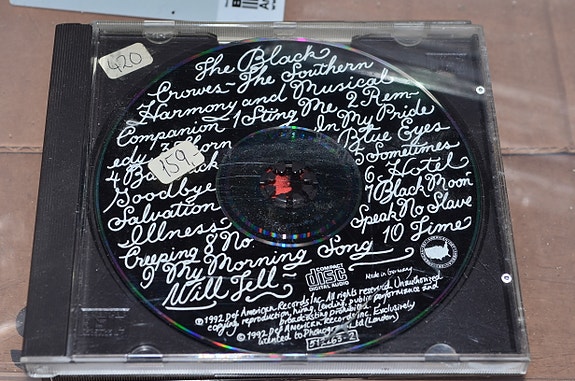 420
The Black
Crowes-The Southern
Harmony and Musical
Companion 1 Sting Me 2 Rem-
edy 3 Thorn In My Pride
4 Bad Luck Blue Eyes
159,-
Goodbye 5 Sometimes
Salvation 6 Hotel
Illness 7 Black Moon
Creeping 8 No Speak No Slave
9 My Morning Song 10 Time
Will Tell
COMPACT
disc
DIGITAL AUDIO
Made in Germany
℗ 1992 Def American Records Inc. All rights reserved. Unauthorized
copying, reproduction, hiring, lending, public performance and
broadcasting prohibited.
© 1992 Def American Records Inc. Exclusively
licensed to Phonogram Ltd (London)
512263-2